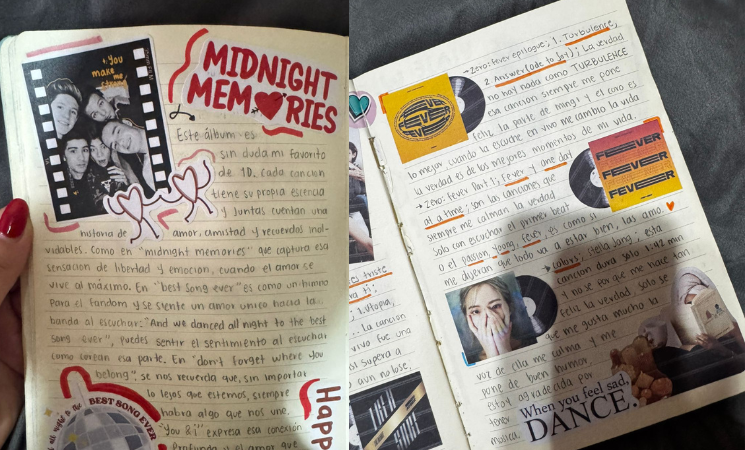 you
make
me
strong
MIDNIGHT
MEMORIES
Este álbum es
sin duda mi favorito
de 1D. cada canción
tiene su propia esencia
y juntas cuentan una
historia de amor, amistad y recuerdos inol-
vidables. Como en "midnight memories" que captura esa
sensación de libertad y emoción, cuando el amor se
vive al máximo. En "best song ever" es como un himno
para el fandom y se siente un amor unico hacia la
banda al escuchar: "And we danced all night to the best
song ever", puedes sentir el sentimiento al escuchar
como corean esa parte. En "don't forget where you
belong", se nos recuerda que, sin importar
lo lejos que estemos, siempre
habra algo que nos une.
"You & i" expresa esa conexión
profunda y el amor que
all night to the
BEST SONG EVER
Happ
→ Zero: fever epilogue, 1. Turbulence,
2. Answer (ode to joy); La verdad
no hay nada como TURBULENCE
esa canción siempre me pone
feliz, la parte de mingi y el coro es
lo mejor cuando la escuche en vivo me cambio la vida
la verdad es de los mejores momentos de mi vida.
→ Zero: fever Part 1; Fever y One day
at a time; son las canciones que
siempre me calman la verdad
solo con escuchar el primer beat
o el passion young, fever es como si
me dijeran que todo va a estar bien, las amo.
→ Colors, Stela Jang, esta
canción dura solo 1:42 min
y no se por que me hace tan
feliz la verdad solo se
que me gusta mucho la
voz de ella me calma y me
pone de buen humor
estoy agradecida por
tener
música.
FEVER
FEVER
FEVER
FEVER
FEVER
FEVER
triste
1. utopia,
la canción
vivo fue una
supera a
aun no use,
When you feel sad,
DANCE.